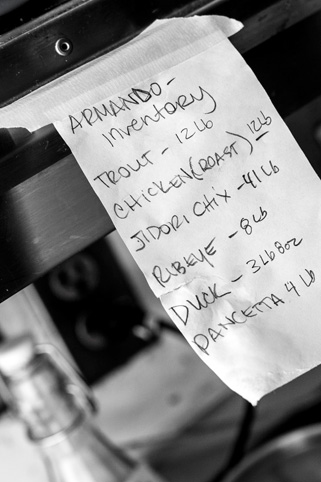 ARMANDO-
Inventory
TROUT - 12 lb
CHICKEN (ROAST) 12lb
JIDORI CHIX -41 lb
RIBEYE - 8lb
DUCK - 3lb 8oz
PANCETTA 4 lb